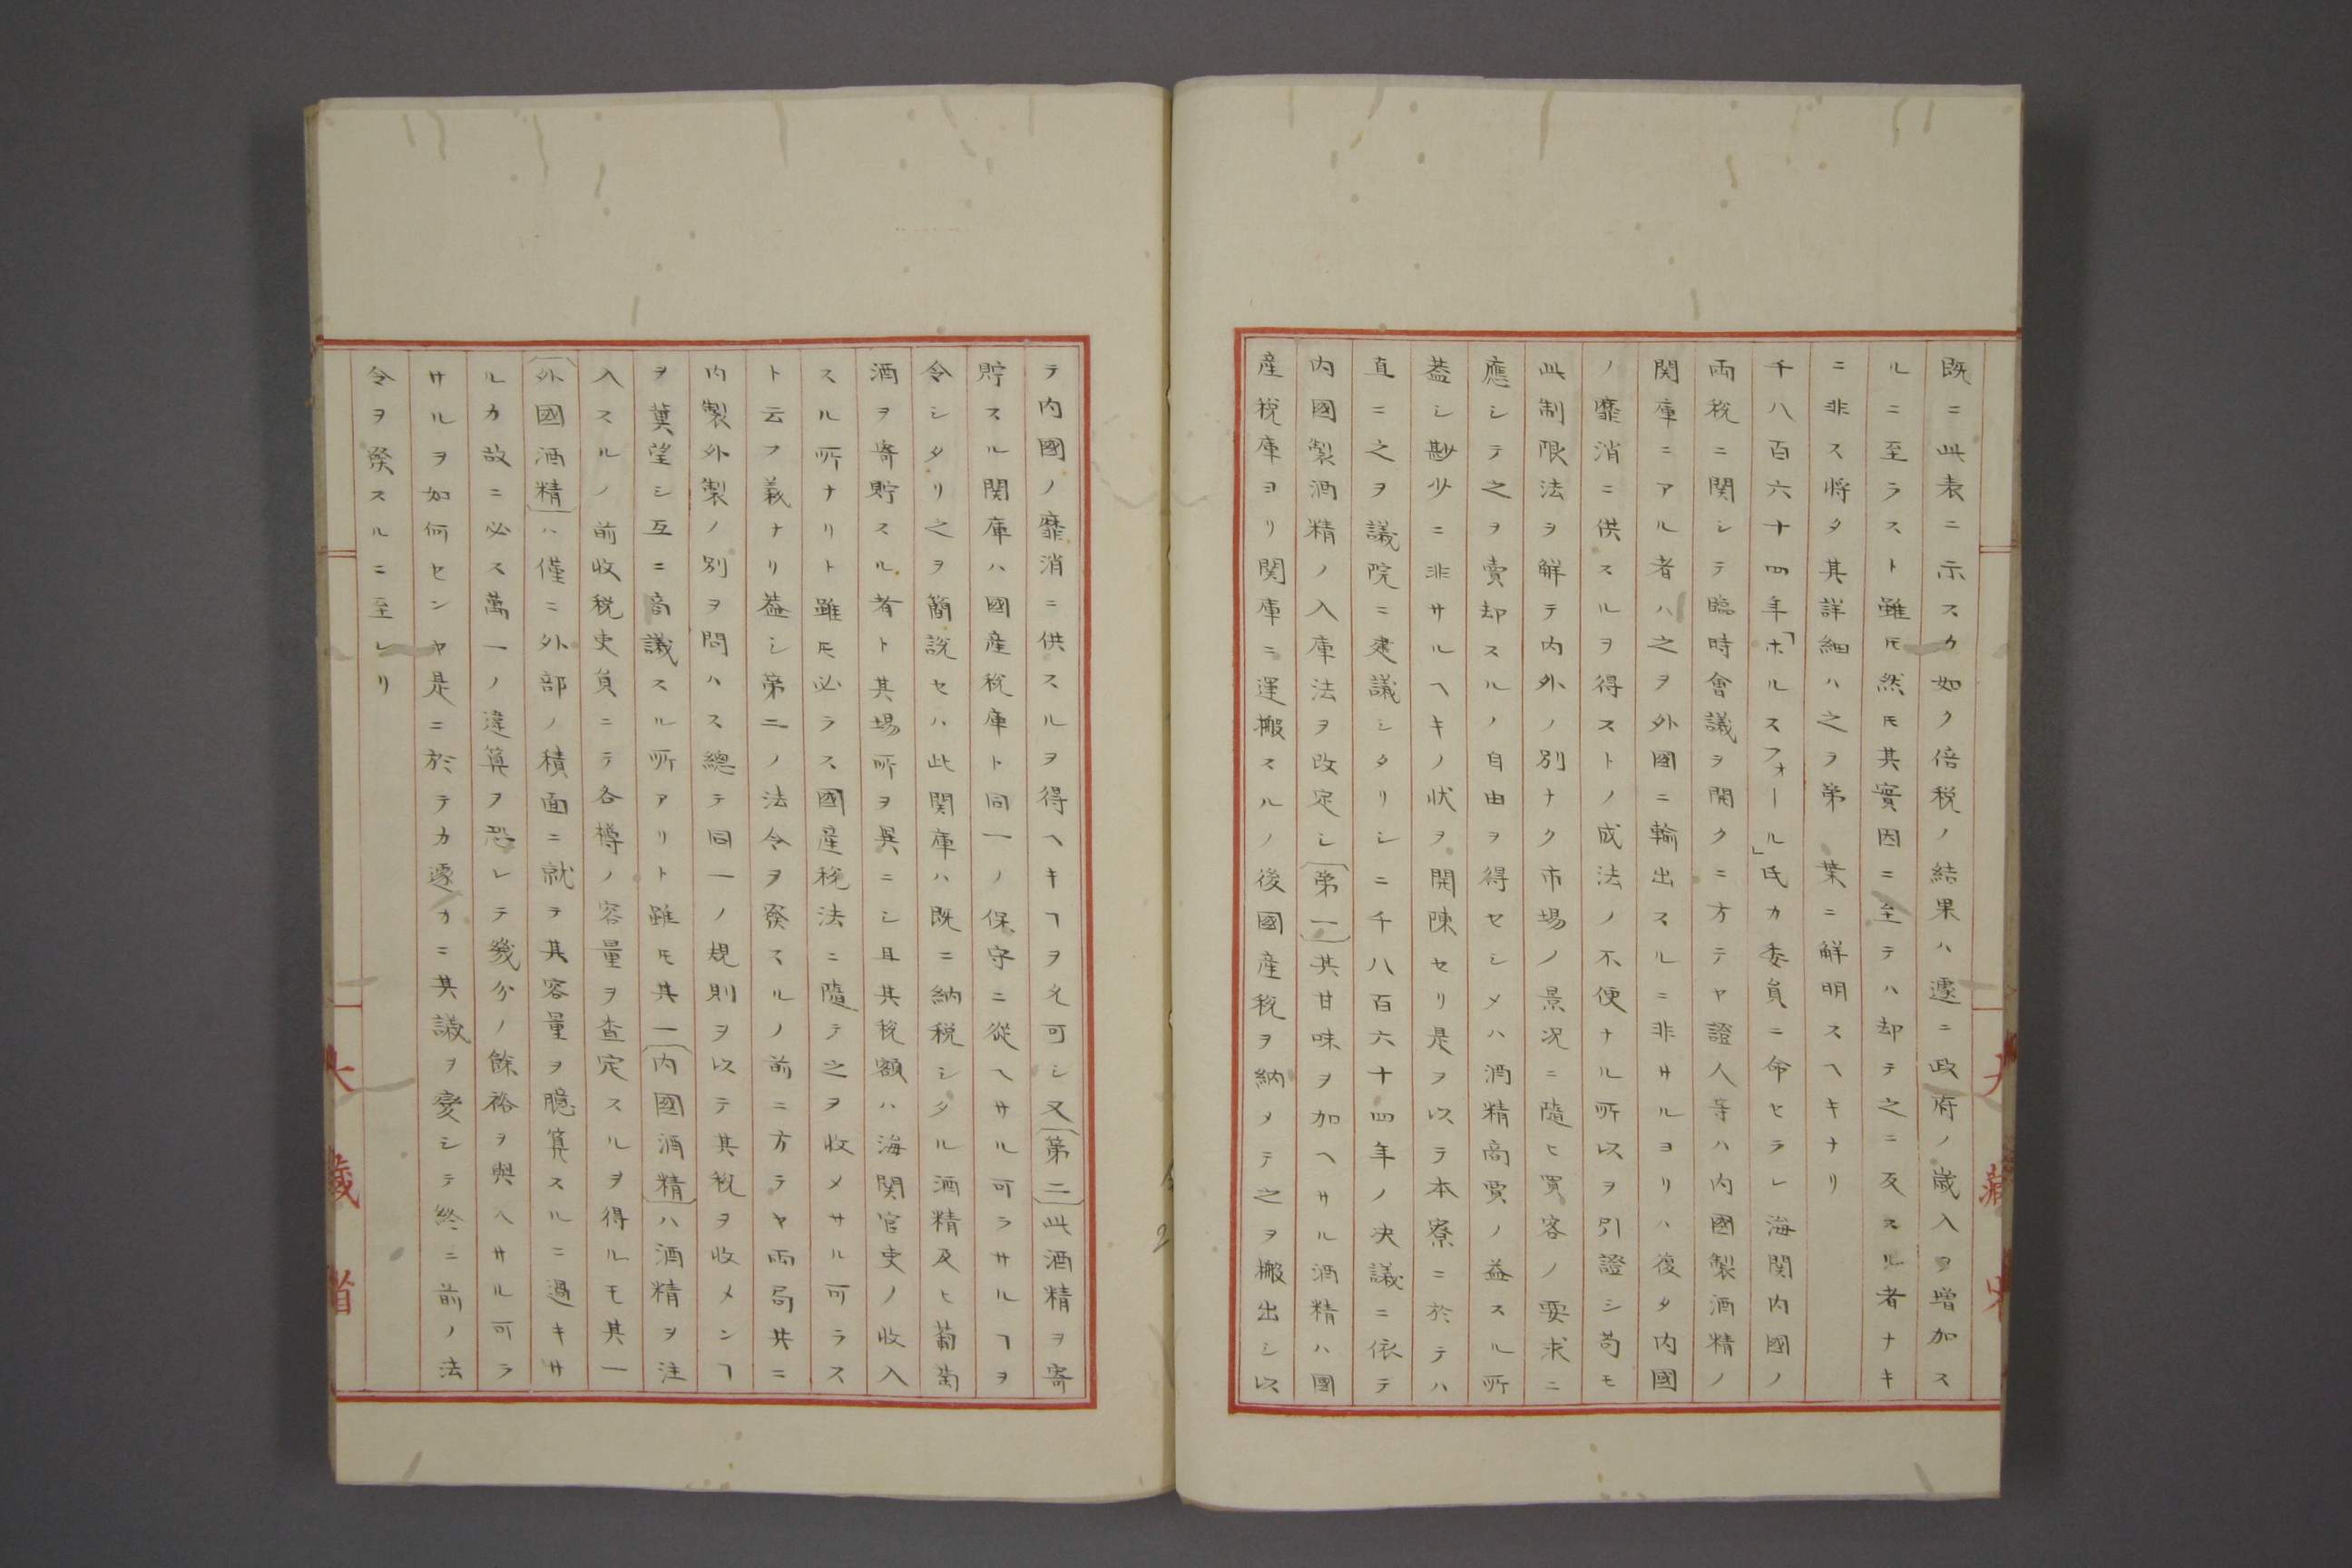 既ニ此表ニ示スカ如ク倍税ノ結果ハ遽ニ政府ノ歳入ヲ増加ス
ルニ至ラスト雖𪜈然𪜈其實因ニ至テハ却テ之ニ反スル者ナキ
ニ非ス将タ其詳細ハ之ヲ第　葉ニ解明スヘキナリ
千八百六十四年「ホルスフォール」氏カ委員ニ命セラレ海関内國ノ
両税ニ関シテ臨時會議ヲ開クニ方テヤ證人等ハ内國製酒精ノ
関庫ニアル者ハ之ヲ外國ニ輸出スルニ非サルヨリハ復タ内國
ノ靡消ニ供スルヲ得ストノ成法ノ不便ナル所以ヲ引證シ苟モ
此制限法ヲ解テ内外ノ別ナク市場ノ景况ニ隨ヒ買客ノ要求ニ
應シテ之ヲ賣却スルノ自由ヲ得セシメハ酒精商賈ノ益スル所
蓋シ尠少ニ非サルヘキノ状ヲ開陳セリ是ヲ以テ本寮ニ於テハ
直ニ之ヲ議院ニ建議シタリシニ千八百六十四年ノ决議ニ依テ
内國製酒精ノ入庫法ヲ改定シ（第一）其甘味ヲ加ヘサル酒精ハ國
産税庫ヨリ関庫ニ運搬スルノ後國産税ヲ納メテ之ヲ搬出シ以
テ内國ノ靡消ニ供スルヲ得ヘキヿヲ允可シ又（第二）此酒精ヲ寄
貯スル関庫ハ國産税庫ト同一ノ保守ニ從ヘサル可ラサルヿヲ
令シタリ之ヲ簡説セハ此関庫ハ既ニ納税シタル酒精及ヒ葡萄
酒ヲ寄貯スル者ト其場所ヲ異ニシ且其税額ハ海関官吏ノ收入
スル所ナリト雖𪜈必ラス國産税法ニ隨テ之ヲ收メサル可ラス
ト云フ義ナリ蓋シ第二ノ法令ヲ發スルノ前ニ方テヤ両局共ニ
内製外製ノ別ヲ問ハス總テ同一ノ規則ヲ以テ其税ヲ收メンヿ
ヲ冀望シ互ニ商議スル所アリト雖𪜈其一（内國酒精）ハ酒精ヲ注
入スルノ前收税吏員ニテ各樽ノ容量ヲ査定スルヲ得ルモ其一
（外國酒精）ハ僅ニ外部ノ積面ニ就テ其容量ヲ臆算スルニ過キサ
ルカ故ニ必ス萬一ノ違算ヲ恐レテ幾分ノ餘裕ヲ與ヘサル可ラ
サルヲ如何センヤ是ニ於テカ遽カニ其議ヲ變シテ終ニ前ノ法
令ヲ發スルニ至レリ
大藏省